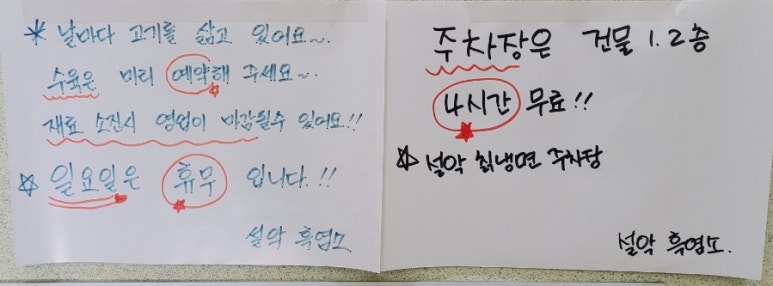 * 날마다 고기를 삶고 있어요~.
수육은 미리 예약해 주세요~.
재료 소진시 영업이 마감될수 있어요!!
☆ 일요일은 휴무 입니다.!!
설악 흑염소
주차장은 건물 1.2층
4시간 무료!!
☆ 설악 칡냉면 주차장
설악 흑염소.